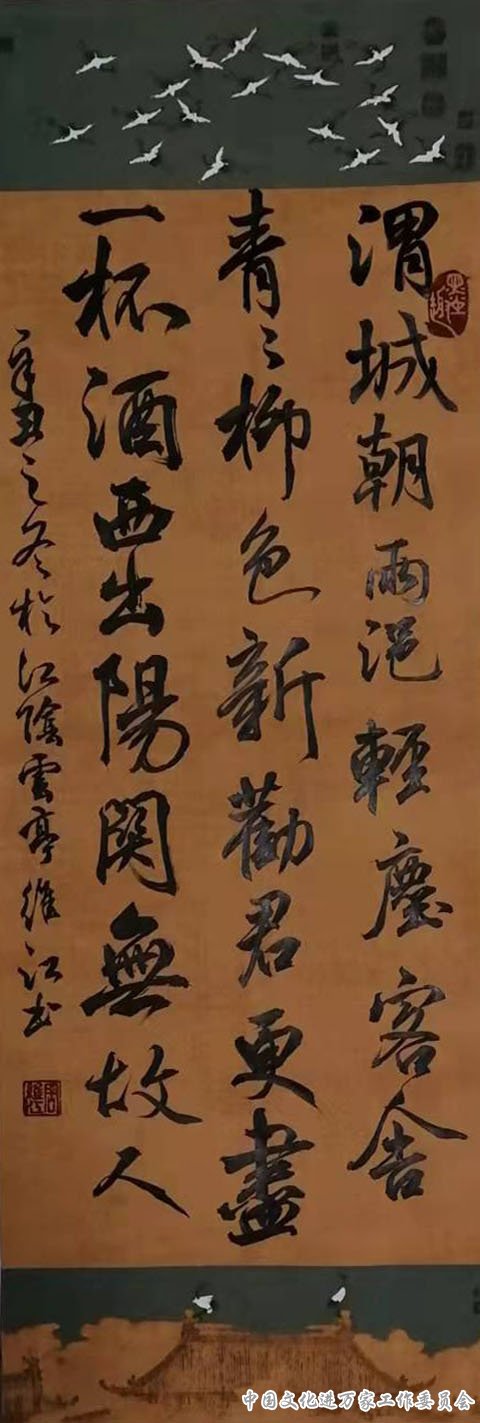 渭城朝雨浥輕塵客舍
青〻柳色新勸君更盡
一杯酒西出陽関無故人
辛丑之冬於江陰雲亭維江书
中国文化进万家工作委员会